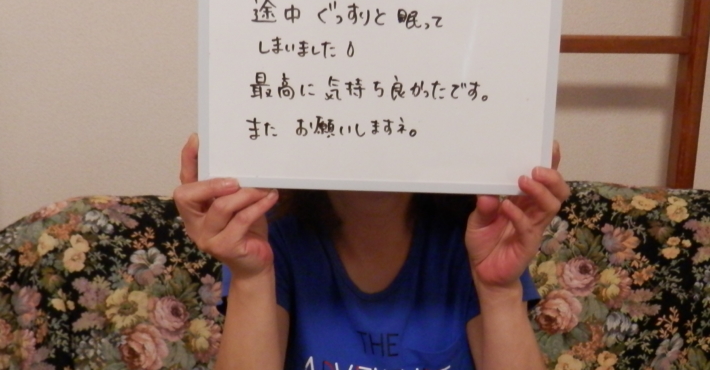 途中 ぐっすりと 眠って
しまいました
最高に 気持ち良かったです。
また お願いしますネ。
THE